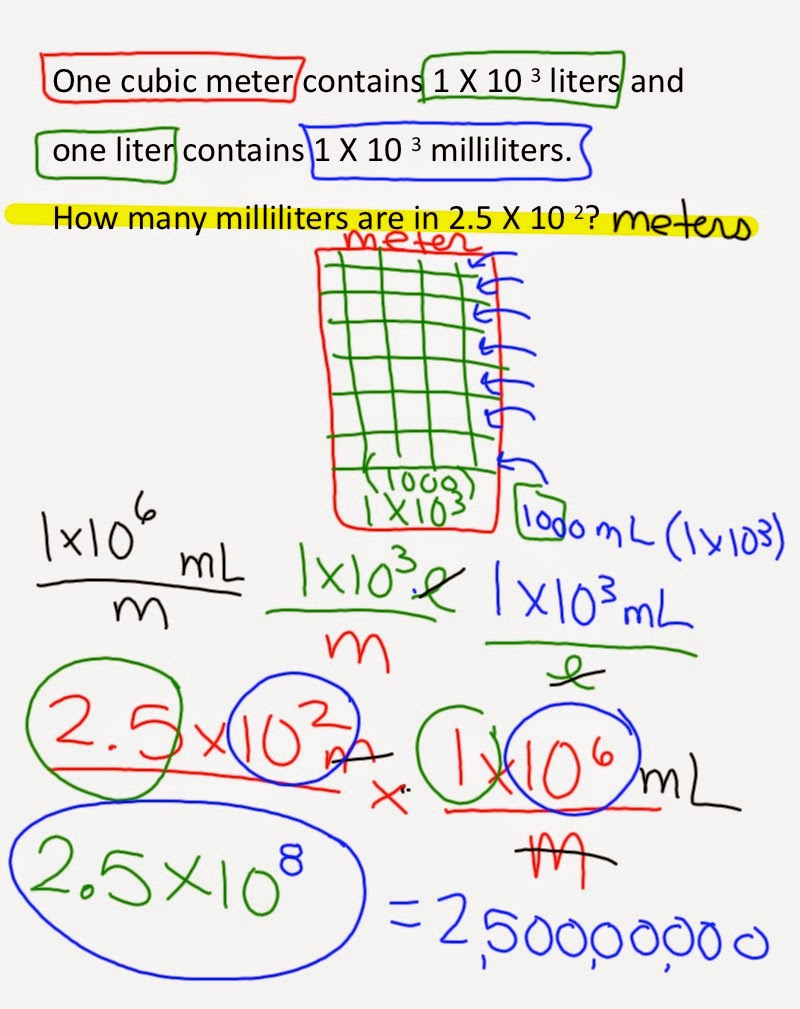 One cubic meter contains 1 X 10 ³ liters and
one liter contains 1 X 10 ³ milliliters.
How many milliliters are in 2.5 X 10 ²? meters
meter
(1000)
1X10³
1000 mL (1x10³)
1x10⁶ mL
m
1x10³ l
m
1x10³ mL
l
2.5x10² m x 1x10⁶ mL
m
2.5x10⁸
= 2,500,00,000